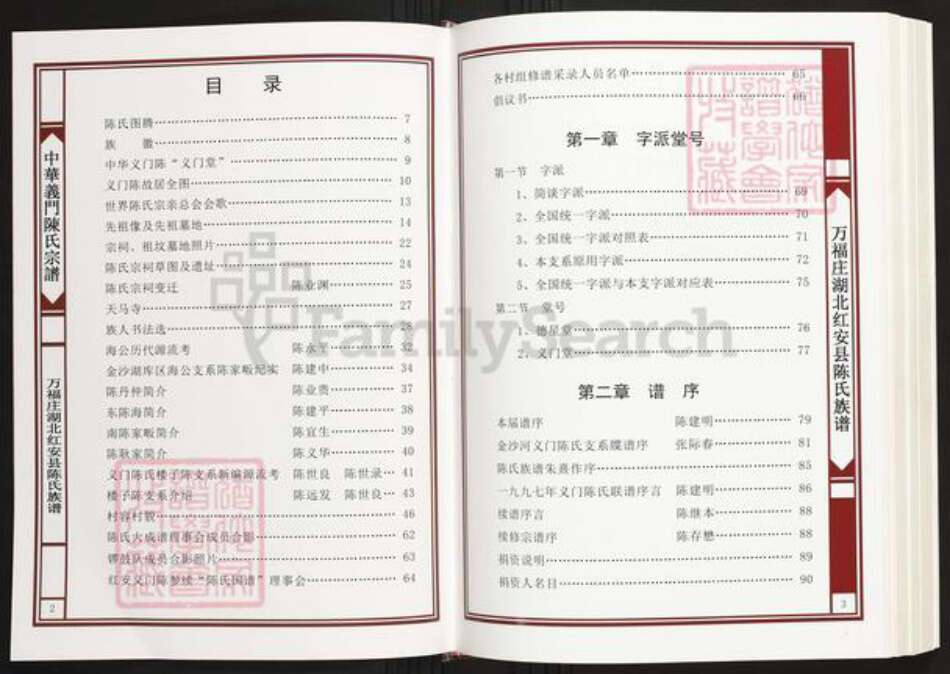 中華義門陳氏宗譜
万福庄湖北红安县陈氏族谱
2
目 录
陈氏图腾 7
族 徽 8
中华义门陈“义门堂” 9
义门陈故居全图 10
世界陈氏宗亲总会会歌 13
先祖像及先祖墓地 14
宗祠、祖坟墓地照片 22
陈氏宗祠草图及遗址 24
陈氏宗祠变迁 陈业渊 25
天马寺 27
族人书法选 29
海公历代源流考 陈永平 32
金沙湖库区海公支系陈家畈纪实 陈建中 34
陈丹仲简介 陈业贵 37
东陈海简介 陈建平 38
南陈家畈简介 陈宣生 39
陈耿家简介 陈义华 40
义门陈氏楼子陈支系新编源流考 陈世良 陈世录 41
楼子陈支系介绍 陈远发 陈世良 43
村容村貌 46
陈氏大成谱理事会成员合影 62
锣鼓队成员合影照片 63
红安义门陈参续“陈氏国谱”理事会 64
各村组修谱采录人员名单 65
倡议书 66
第一章 字派堂号
第一节 字派
1、简谈字派 69
2、全国统一字派 70
3、全国统一字派对照表 71
4、本支系原用字派 72
5、全国统一字派与本支字派对应表 75
第二节 堂号
1、德星堂 76
2、义门堂 77
第二章 谱 序
本届谱序 陈建明 79
金沙河义门陈氏支系牒谱序 张际春 81
陈氏族谱朱熹作序 85
一九九七年义门陈氏联谱序言 陈建明 86
续谱序言 陈继本 88
续修宗谱序 陈存懋 88
捐资说明 89
捐资人名目 90
万福庄湖北红安县陈氏族谱
3
FamilySearch